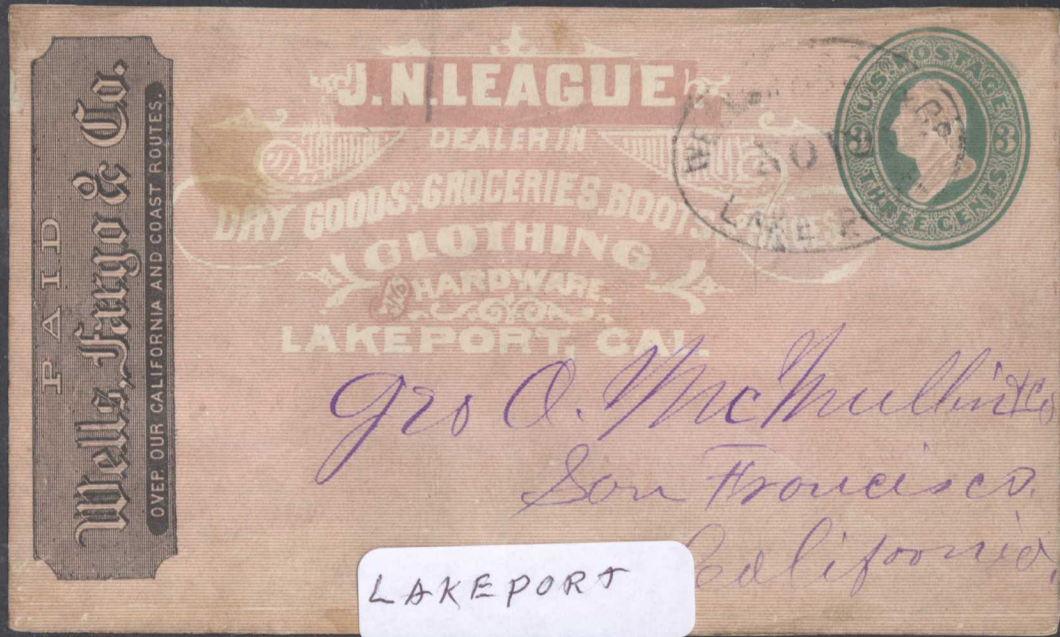 PAID
Wells, Fargo & Co.
OVER OUR CALIFORNIA AND COAST ROUTES.
J. N. LEAGUE
DEALER IN
DRY GOODS, GROCERIES, BOOTS,
CLOTHING,
HARDWARE.
LAKEPORT, CAL.
U.S. POSTAGE
3 3
THREE CENTS
NOV
Geo O. McMullin & Co
San Francisco.
California.
LAKEPORT